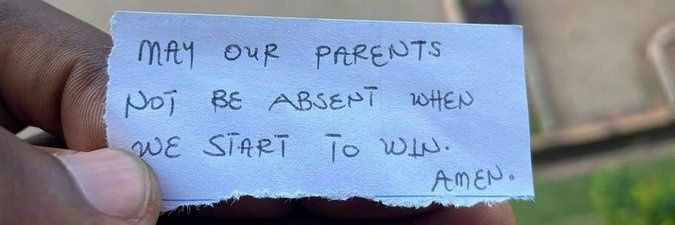 MAY OUR PARENTS
NOT BE ABSENT WHEN
WE START TO WIN.
AMEN.